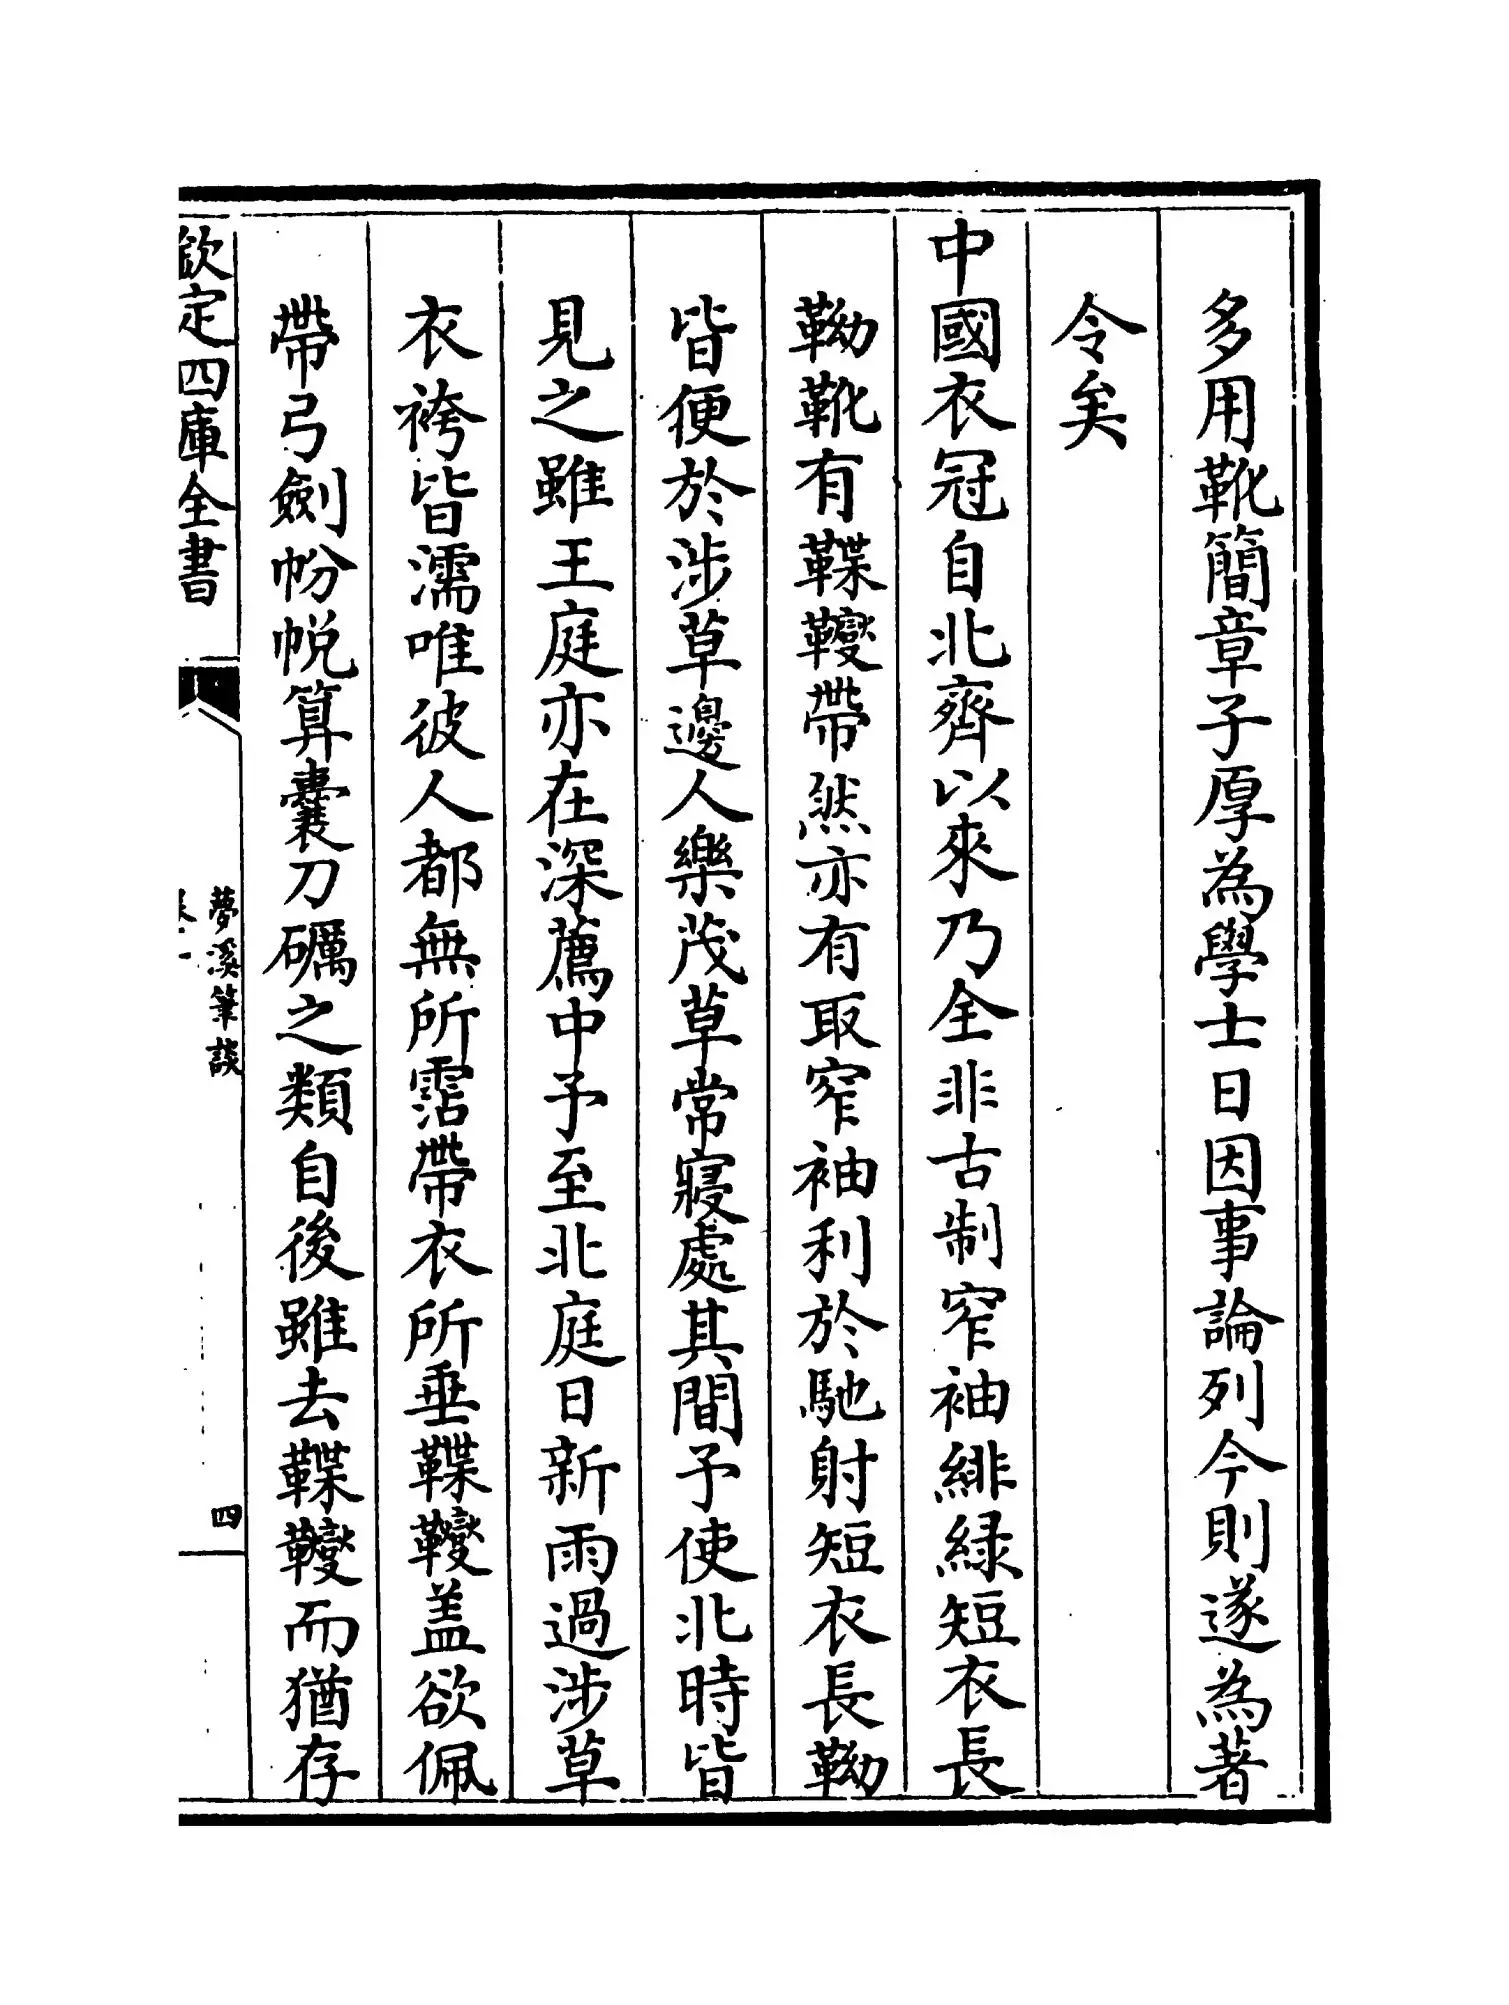 多用靴簡章子厚為學士日因事論列今則遂為著
令矣
中國衣冠自北齊以來乃全非古制窄袖緋綠短衣長
靿靴有鞢䪍帶然亦有取窄袖利於馳射短衣長靿
皆便於涉草邊人樂茂草常寢處其間予使北時皆
見之雖王庭亦在深薦中予至北庭日新雨過涉草
衣袴皆濡唯彼人都無所霑帶衣所垂鞢䪍盖欲佩
帶弓劍帉帨算囊刀礪之類自後雖去鞢䪍而猶存
欽定四庫全書
夢溪筆談
四